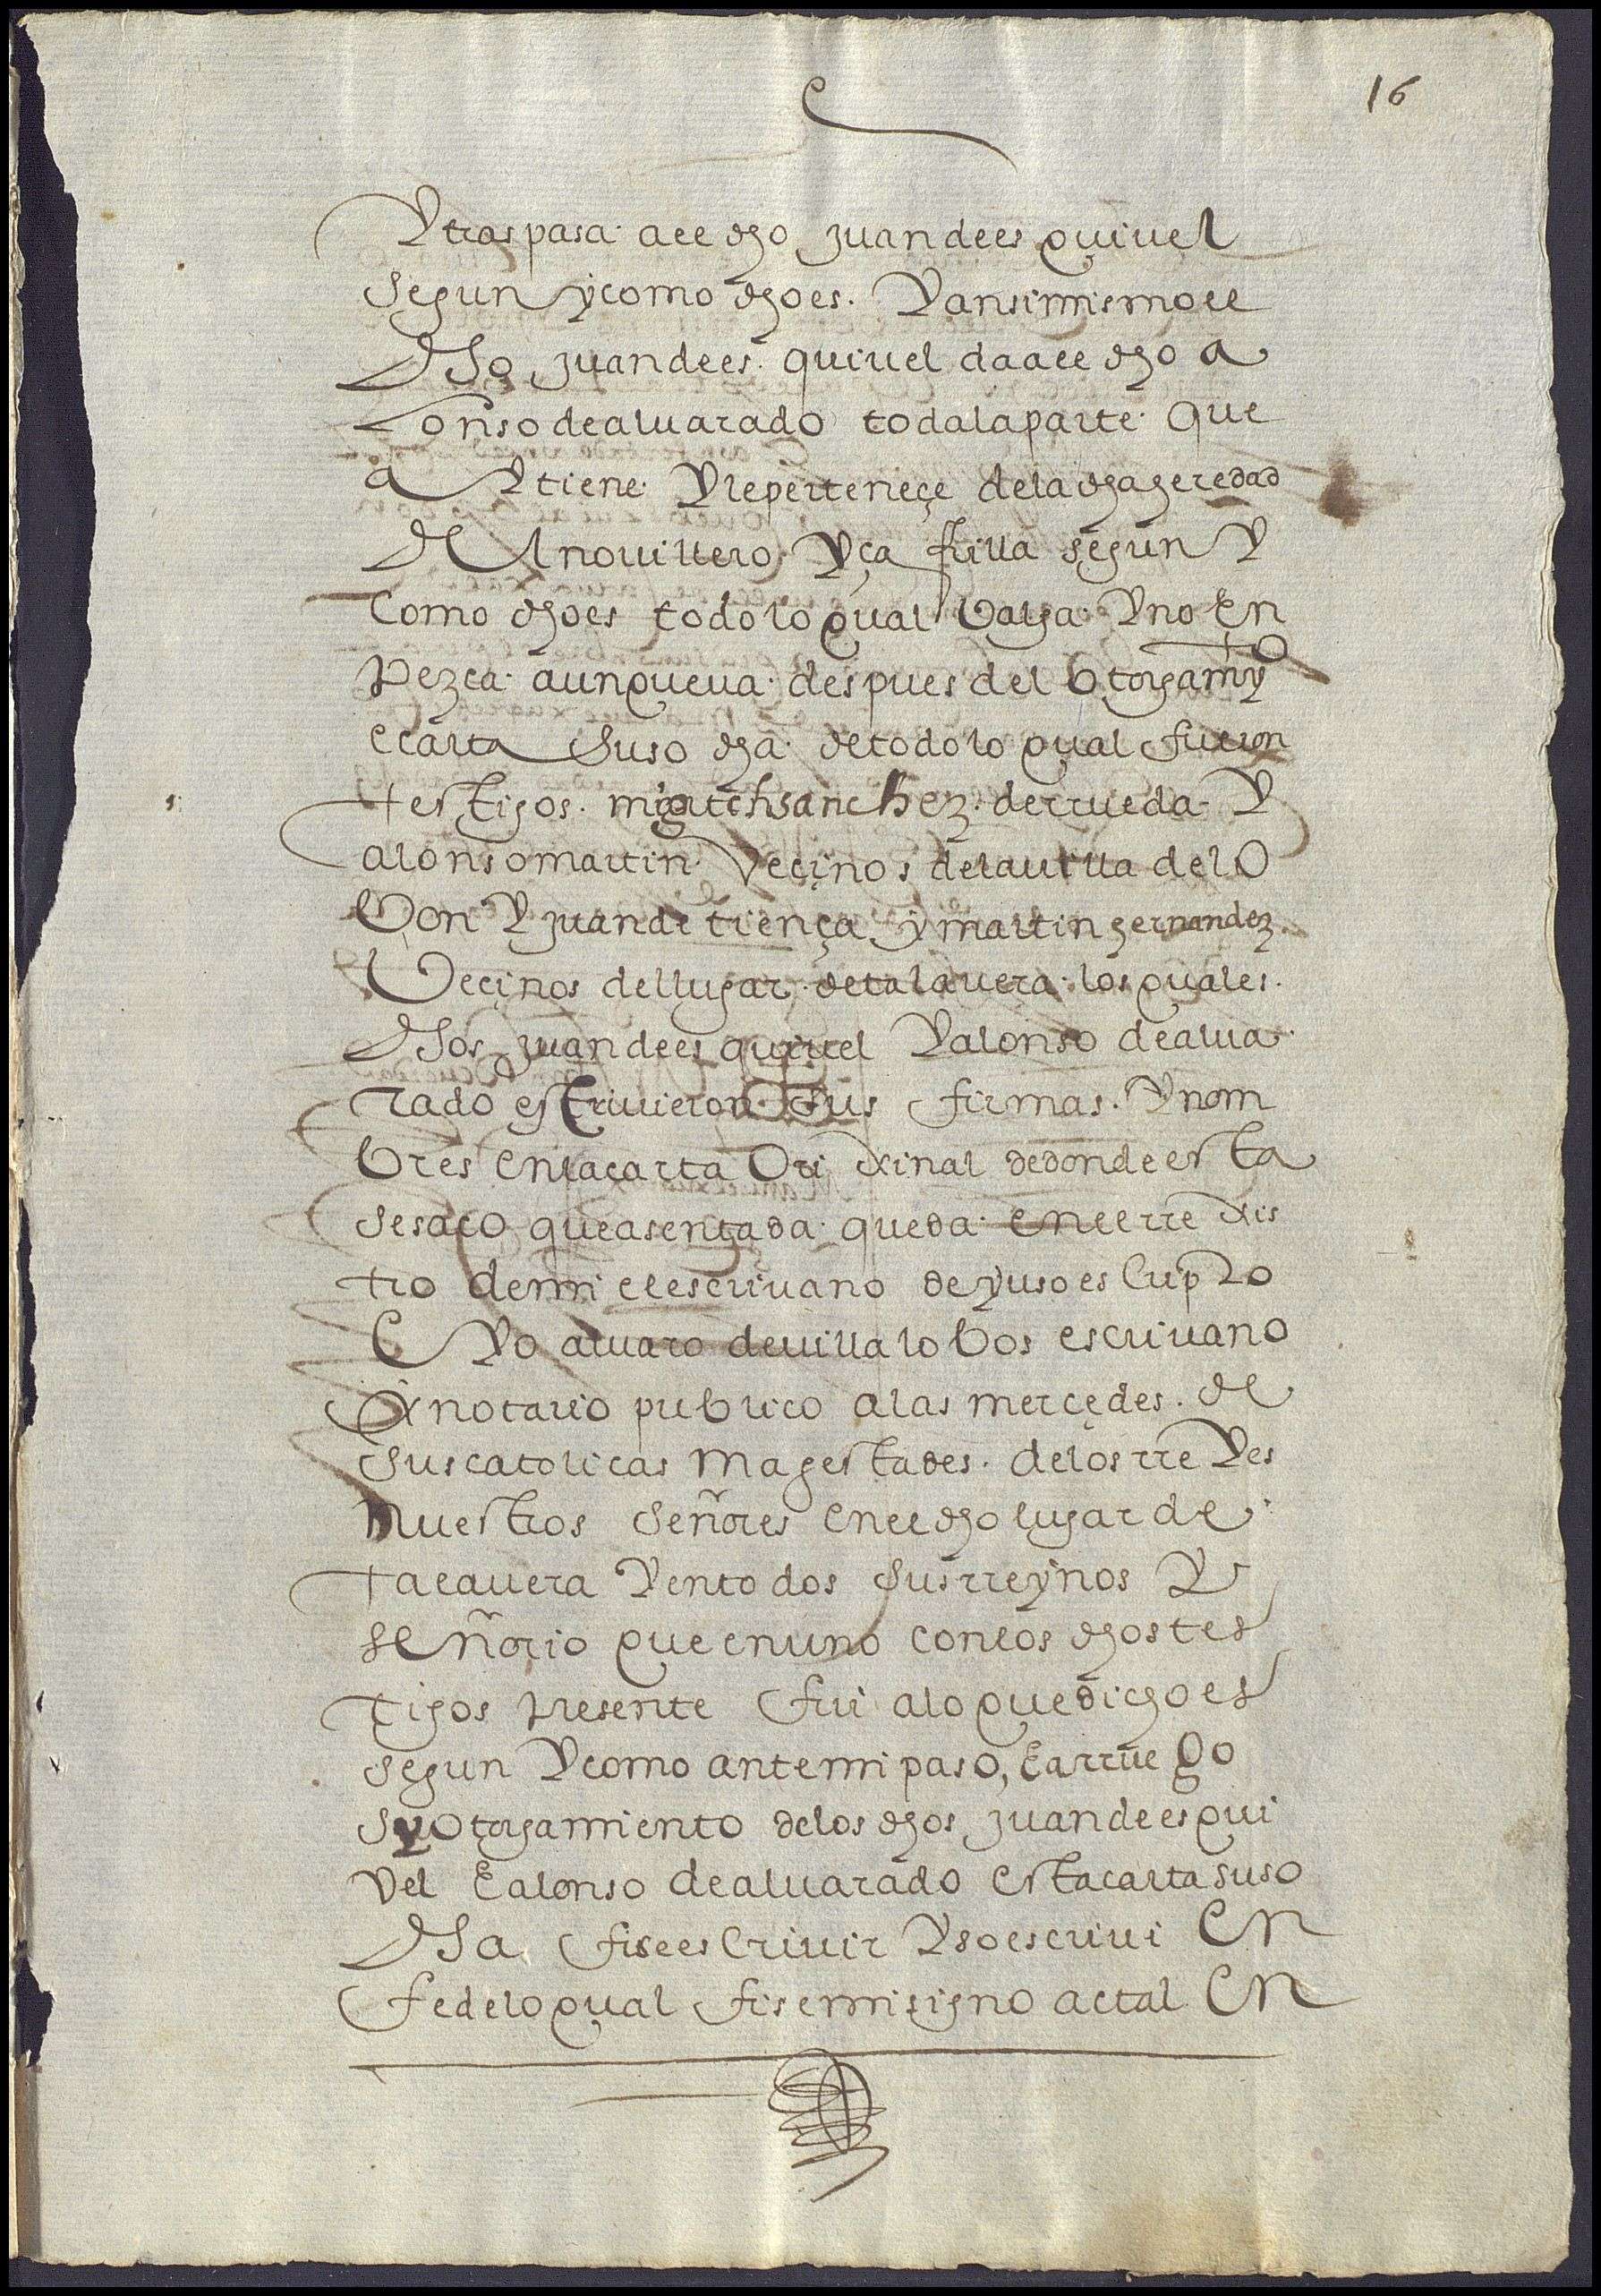 16
Y traspasa al dho juan de esquivel
segun y como dho es. Y ansimismo el
dho juan de esquivel da al dho a
lonso de alvarado toda la parte que
a Y tiene Y le perteneçe de la dha heredad
del novillero Y ça frilla segun Y
como dho es todo lo qual valga Y no en
pezca aunque va despues del otorgamyo
e carta suso dha de todo lo qual fueron
testigos. migel sanchez de rrueda Y
alonso martin veçinos de la villa del o
bon Y juan de trença y martin hernandez
veçinos del lugar de talavera los quales
dhos juan de esquivel Y alonso de alva
rado escrivieron sus firmas. Y nom
bres en la carta orixinal de donde esta
se saco que asentada queda en el rrexis
tro de mi el escrivano de yuso escripto
Yo alvaro de villalobos escrivano
& notario publico a las merçedes. de
sus catolicas magestades. de los rreYes
nuestros señores en el dho lugar de
talavera Y en todos sus rreynos Y
señorio que en uno con los dhos tes
tigos presente fui a lo que dicho es
segun Y como ante mi paso, e a rruego
Y otorgamiento de los dhos juan de esqui
vel e alonso de alvarado esta carta suso
dha fise escrivir Y so escrivi en
fe de lo qual fise mi signo a tal en